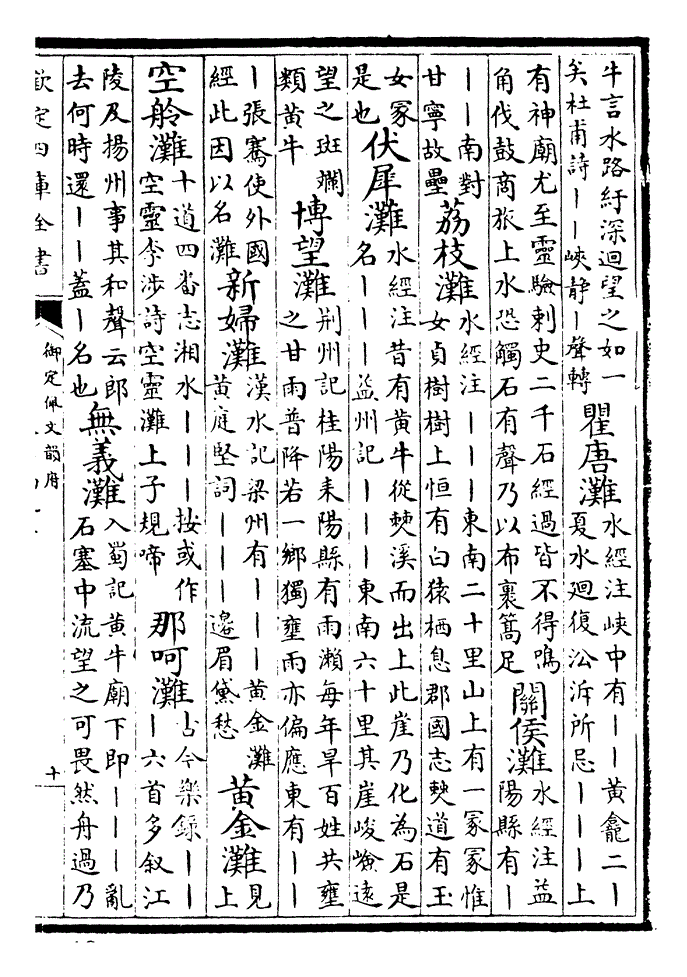 牛言水路紆深迴望之如一
矣杜甫詩||峽静|聲轉
瞿唐灘
水經注峽中有||黃龕二|
夏水迴復㳂泝所忌|||上
有神廟尤至靈驗刺史二千石經過皆不得鳴
角伐鼓商旅上水恐觸石有聲乃以布裹篙足
關侯灘
水經注益
陽縣有|
||南對
甘寧故壘
荔枝灘
水經注||||東南二十里山上有一冢冢惟
女貞樹樹上恒有白猿栖息郡國志僰道有玉
女冢
是也
伏犀灘
水經注昔有黃牛從僰溪而出上此崖乃化為石是
名||||益州記||||東南六十里其崖峻嶮遠
望之斑斕
類黃牛
博望灘
荆州記桂陽耒陽縣有雨瀨每年旱百姓共壅
之甘雨普降若一鄉獨壅雨亦偏應東有||
|張騫使外國
經此因以名灘
新婦灘
漢水記梁州有|||黃金灘
黃庭堅詞|||邉眉黛愁
黃金灘
見
上
空舲灘
十道四畨志湘水|||按或作
空靈李涉詩空靈灘上子規啼
那呵灘
古今樂録||
|六首多叙江
陵及揚州事其和聲云郎
去何時還||蓋|名也
無義灘
入蜀記黃牛廟下即|||亂
石塞中流望之可畏然舟過乃
欽定四庫全書
御定佩文韻府
十